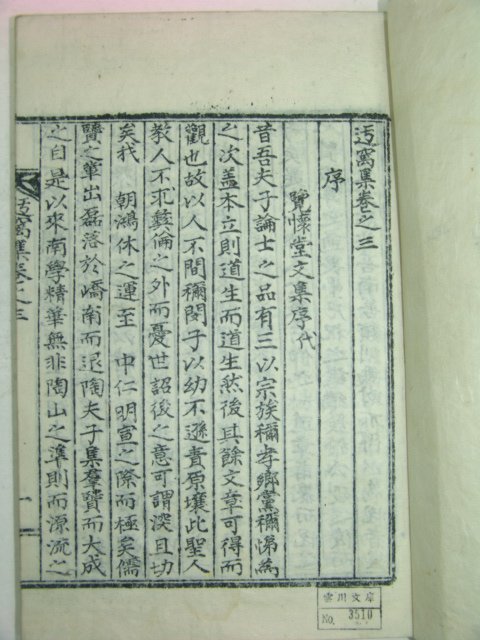 迃窩集卷之三
序
覽懷堂文集序代
昔吾夫子論士之品有三以宗族稱孝鄕黨稱悌爲
之次盖本立則道生而道生然後其餘文章可得而
觀也故以人不間稱閔子以幼不遜責原壤此聖人
教人不求彝倫之外而憂世詔後之意可謂深且切
矣我　朝鴻休之運至　中仁明宣之際而極矣儒
賢之輩出磊落於嶠南而退陶夫子集羣賢而大成
之自是以來南學精華無非陶山之準則而源流之
迃窩集卷之三
一
雲川文庫
No. 3510